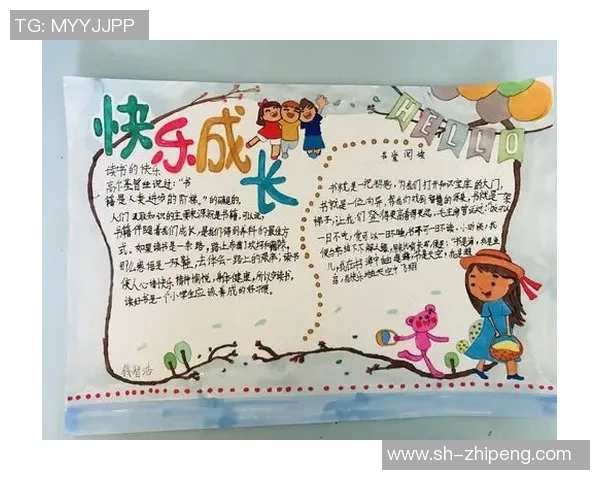 TG: MYYJJPP
快乐成长
HELLO
读书的快乐
高尔基曾经说过：“书
籍是人类进步的阶梯。”的确是的，
人们汲取知识的主要来源就是书籍，可以说，
书籍伴随着我们成长，是我们得到养料的最佳方
式。如果读书是一条路，路上布满了坎坷和荆棘，
那么
读书
使人心情快乐，精神愉悦，有益健康，所以多读书，
读好书是一个小学生应该养成的好习惯。
我爱阅读
书就是一把钥匙，为我们打开知识宝库的大门，
书就是一位向导，带我们找到智慧的源泉，书就是一架
梯子，让我们登得更高看得更远。毛主席曾说过：“饭可以
一日不吃，觉可以一日不睡，书不可一日不读
www.sh-zhipeng.com